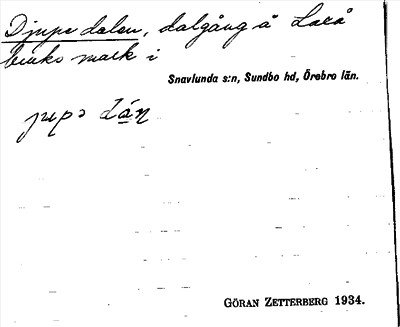 Djupe dalen, dalgång å Laxå
bruks mark i
Snavlunda s:n, Sundbo hd, Örebro län.
GÖRAN ZETTERBERG 1934.